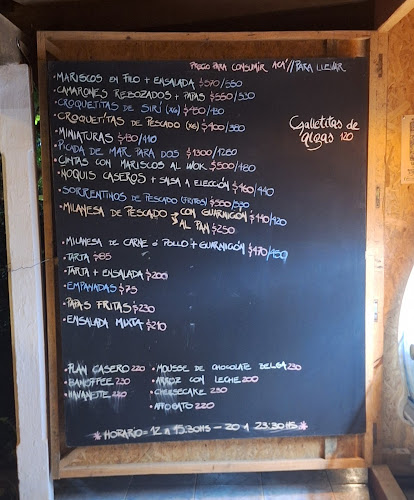 PRECIO PARA CONSUMIR ACA' // PARA LLEVAR
• MARISCOS EN FILO + ENSALADA $570/550
• CAMARONES REBOZADOS + PAPAS $550/530
• CROQUETITAS DE SIRÍ (x6) $450/430
• CROQUETITAS DE PESCADO (x6) $400/380
• MINIATURAS $430/410
• PICADA DE MAR PARA DOS $1300/1280
• CINTAS CON MARISCOS AL WOK $500/480
• ÑOQUIS CASEROS + SALSA A ELECCIÓN $460/440
• SORRENTINOS DE PESCADO (FRITOS) $550/530
• MILANESA DE PESCADO CON GUARNICIÓN $440/420
AL PAN $250
• MILANESA DE CARNE ó POLLO + GUARNICIÓN $470/450
• TARTA $85
• TARTA + ENSALADA $205
• EMPANADAS $75
• PAPAS FRITAS $230
• ENSALADA MIXTA $210
Galletitas de
algas 120
• FLAN CASERO 220
• BANOFFEE 230
• HAVANETTE 220
• MOUSSE DE CHOCOLATE BELGA 230
• ARROZ CON LECHE 200
• CHEESECAKE 230
• AFFOGATO 220
* HORARIO = 12 A 15:30HS - 20 A 23:30HS *